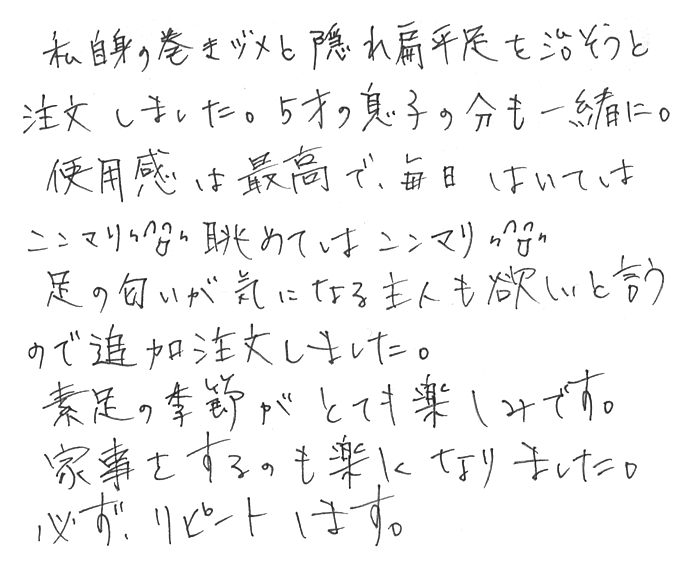 私自身の巻きヅメと隠れ扁平足を治そうと
注文しました。5才の息子の分も一緒に。
使用感は最高で、毎日はいては
ニンマリ 眺めてはニンマリ
足の匂いが気になる主人も欲しいと言う
ので追加注文しました。
素足の季節がとても楽しみです。
家事をするのも楽になりました。
必ず、リピートします。